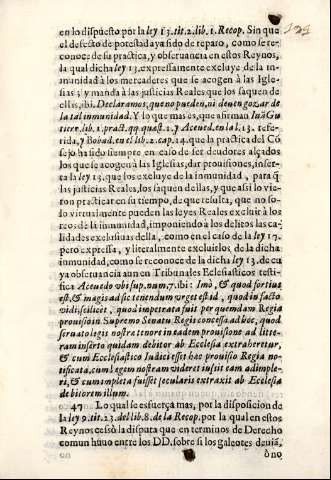 en lo dispuesto por la ley 13. tit. 2. lib. 1. Recop. Sin que
el defecto de potestad aya sido de reparo, como se reconoce
de su practica, y obseruancia en estos Reynos,
la qual dicha ley 13. expressamente excluye de la inmunidad
à los mercaderes que se acogen à las Iglesias
; y manda à las justicias Reales que los saquen de
ellas, ibi: Declaramos, que no pueden, ni deuen gozar de
la tal inmunidad. Y lo que mas es, que afirman Iuã Gutierr.
lib. 1. pract. qq. quæst. 2. y Azeued. en la l. 13. referida,
y Bobad. en el lib. 2. cap. 14. que la practica del Cõsejo
ha sido siempre en caso de ser deudores alçados
los que se acogen à las Iglesias, dar prouisiones, inserta
la ley 13. que los excluye de la inmunidad, para q̃
las justicias Reales, los saquen dellas, y que assi lo vieron
practicar en su tiempo, de que resulta, que no solo
virtualmente pueden las leyes Reales excluir à los
reos de la inmunidad, imponiendo à los delitos las calidades
exclusiuas della, como en el caso de la ley 17.
pero expressa, y literalmente excluirlos, de la dicha
inmunidad, como se reconoce de la dicha ley 13. de cuya
obseruancia aun en Tribunales Eclesiasticos testifica
Azeuedo vbi sup. num. 7. ibi: Imò, & quod fortius
est, & magis ad sic tenendum vrget est id, quod in facto
vidi scilicet, quod impetrata fuit per quemdam Regia
prouisio in Supremo Senatu Regis concessa ad hoc, quod
seruato legis nostræ tenore in eadem prouisione ad litteram
inserto quidam debitor ab Ecclesia extraheretur,
& cum Ecclesiastico Iudici esset hæc prouisio Regia notificata,
cum legem nostram videret iussit eam adimpleri,
& cum impleta fuisset secularis extraxit ab Ecclesia
debitorem illum.
47 Lo qual se esfuerça mas, por la disposicion de
la ley 9. tit. 23. del lib. 8. de la Recop. por la qual en estos
Reynos cessò la disputa que en terminos de Derecho
comun huuo entre los DD. sobre si los galeotes deuiã,
ò no